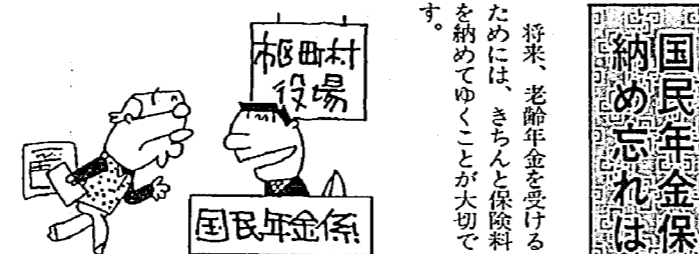 国民年金保
納め忘れは
将来、老齢年金を受ける
ためには、きちんと保険料
を納めてゆくことが大切で
す。
市区町村
役場
国民年金係